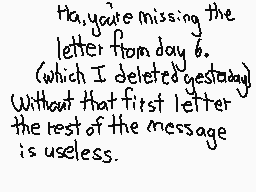 Ha, you're missing the
letter from day 6.
(which I deleted yesterday)
Without that first letter
the rest of the message
is useless.